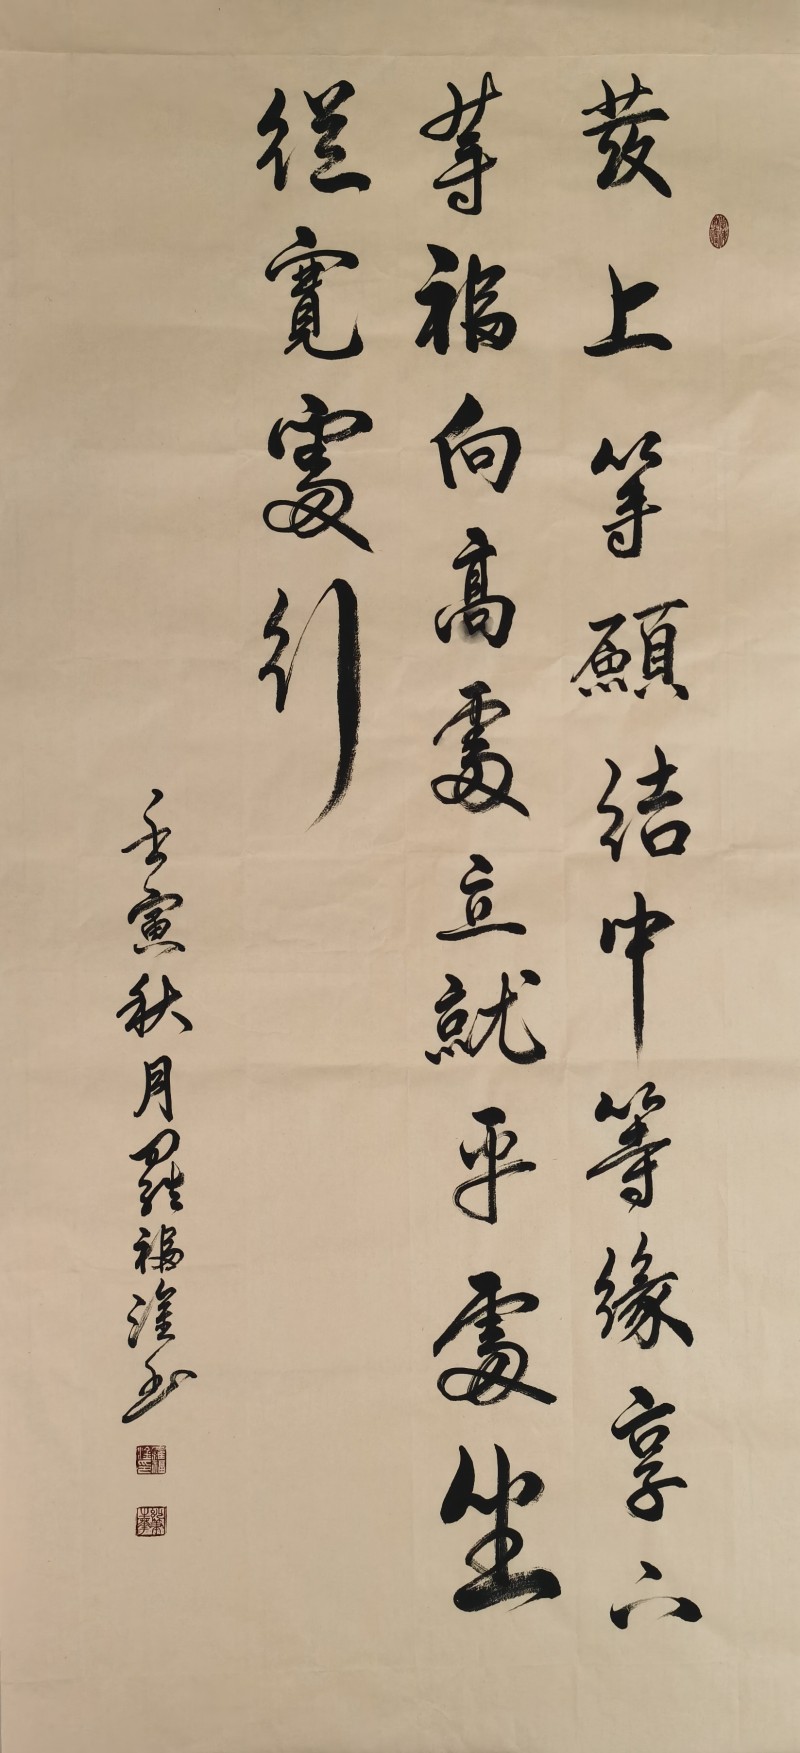 發上等願結中等緣享下
等福向高處立就平處坐
從寬處行
壬寅秋月羅福淮書